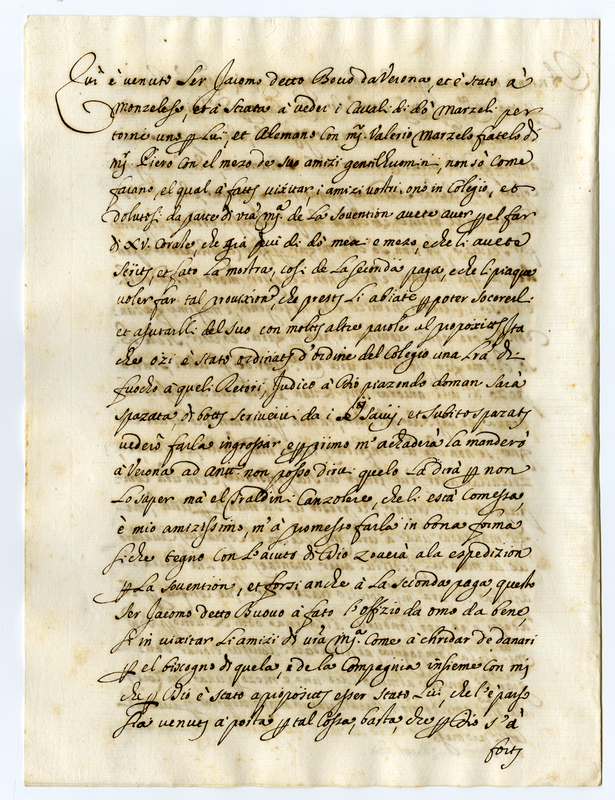 Qui è venuto Ser Jacomo detto Bovo da Verona, et è stato à
Monzelese, et à Strata à veder i Cavali di do Marzeli per
torne uno lui, et Alemano con mj Valerio Marzelo fratelo di
mj Piero con el mezo de suo amizi gentilhuomini, non sò come
farano, el qual à fatto visitar i amizi vostri sono in Colegio, et
dolutosi da parte di vra de la soventión avete aver el far
di XV. Corale, che già di do mexi e mezo, e che li avete
et fato la mostra, cosi de la seconda paga, e che li piaqua
voler far tal provixion, che presto li abiate poter socoreli
et ajutarli del suo con molte altre parole al proposito, sta
che ozi è stato ordinato d'ordine del Colegio una Lra di
fuocho à queli Retori, Judico à Dio piazendo doman sarà
spazata, di botto scrivervi da i Savij, et subito spazato
vederò farla ingrossar, e primo m'achaderà la manderò
à Verona ad non posso dirvi quelo la dirà non
lo saper mà el Fraldini Canzelere, che li està comessa,
è mio amizissimo, m'à promesso farla in bona forma
siche tegno con l'aiuto di Dio zoverà ala espedizion
la soventión, et forsi anche à la seconda paga, questo
Ser Jacomo detto Buovo à fato l'offizio da omo da bene,
sì in visitar li amizi di vrà come à chridar de danari
el bisogno di quela, e de la Compagnia insieme con mj
che Dio è stato a proposito esser stato lui, che l'è parso
sia venuto à posta tal Cossa, basta, che Dio s'à
forti